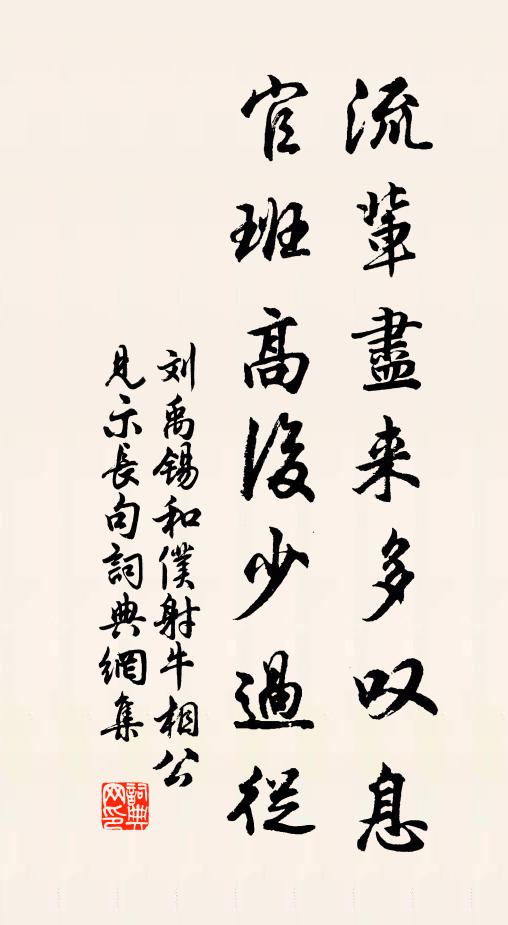 流輩盡来多叹息
官班高後少過從
刘禹锡和僕射牛相公
見示長句詞典網集
詞典网印